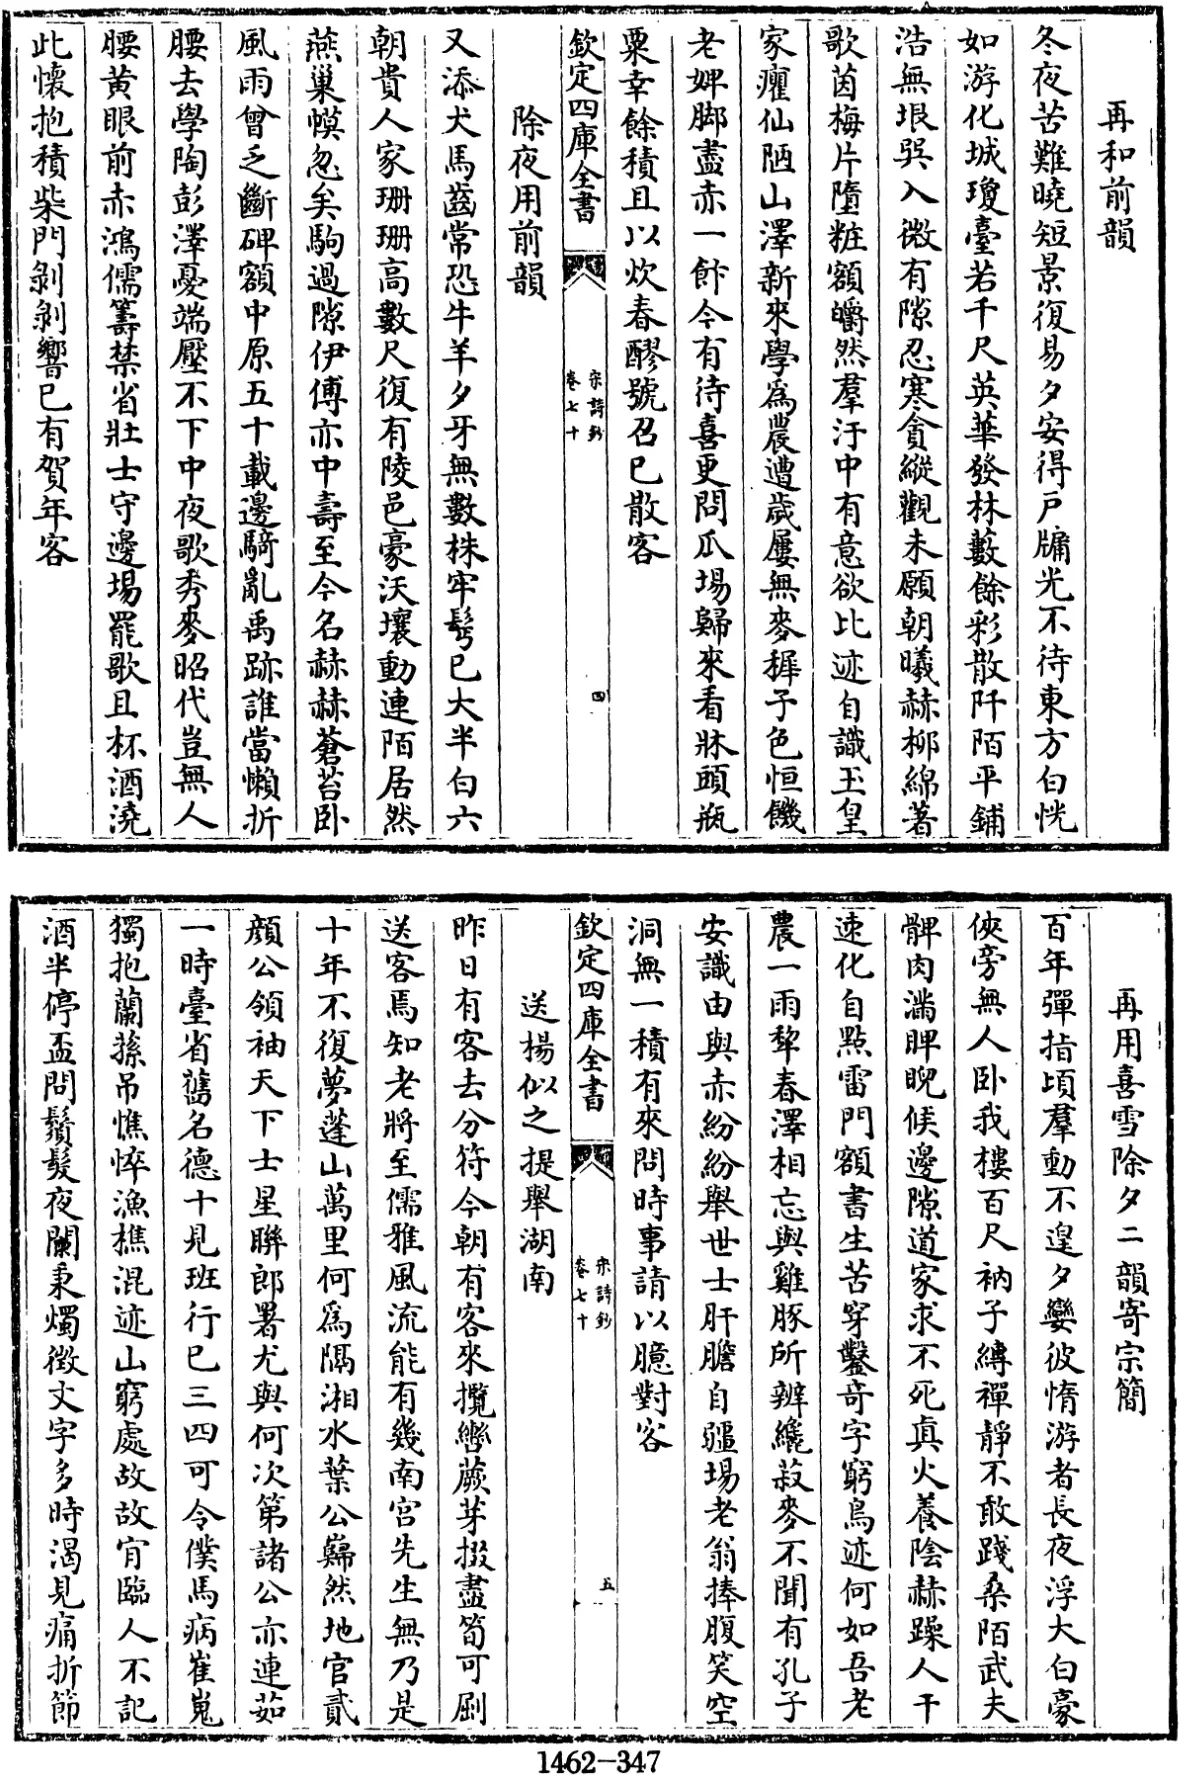 再和前韻
冬夜苦難曉短景復易夕安得戶牖光不待東方白恍
如游化城瓊臺若千尺英華發林藪餘彩散阡陌平鋪
浩無垠巽入微有隙忍寒貪縱觀未願朝曦赫柳綿著
歌茵梅片墮粧額皭然羣汙中有意欲比迹自識玉皇
家癯仙陋山澤新來學為農遭歲屢無麥穉子色恒饑
老婢脚盡赤一飽今有待喜更問瓜場歸來看牀頭瓶
粟幸餘積且以炊春醪號召已散客
欽定四庫全書
宋詩鈔
卷七十
四
除夜用前韻
又添犬馬齒常恐牛羊夕牙無數株牢髩已大半白六
朝貴人家珊珊高數尺復有陵邑豪沃壤動連陌居然
燕巢幙忽矣駒過隙伊傅亦中壽至今名赫赫蒼苔卧
風雨曾乏斷碑額中原五十載邊騎亂禹跡誰當懶折
腰去學陶彭澤憂端壓不下中夜歌秀麥昭代豈無人
腰黄眼前赤鴻儒籌禁省壯士守邊埸罷歌且杯酒澆
此懷抱積柴門剝剝響已有賀年客
再用喜雪除夕二韻寄宗簡
百年彈指頃羣動不遑夕孌彼惰游者長夜浮大白豪
俠旁無人卧我樓百尺衲子縛禪靜不敢踐桑陌武夫
髀肉滿睥睨候邊隙道家求不死真火養陰赫躁人干
速化自點雷門額書生苦穿鑿奇字窮鳥迹何如吾老
農一雨犂春澤相忘與雞豚所辨纔菽麥不聞有孔子
安識由與赤紛紛舉世士肝膽自疆埸老翁捧腹笑空
洞無一積有來問時事請以臆對客
欽定四庫全書
宋詩鈔
卷七十
五
送楊似之提舉湖南
昨日有客去分符今朝有客來攬轡蕨芽掇盡筍可劚
送客焉知老將至儒雅風流能有幾南宮先生無乃是
十年不復夢蓬山萬里何為隔湘水葉公巋然地官貳
顔公領袖天下士星聯郎署尤與何次第諸公亦連茹
一時臺省舊名德十見班行已三四可令僕馬病崔嵬
獨抱蘭蓀弔憔悴漁樵混迹山窮處故故肎臨人不記
酒半停盃問鬚髮夜闌秉燭徴文字多時渴見痛折節
1462-347